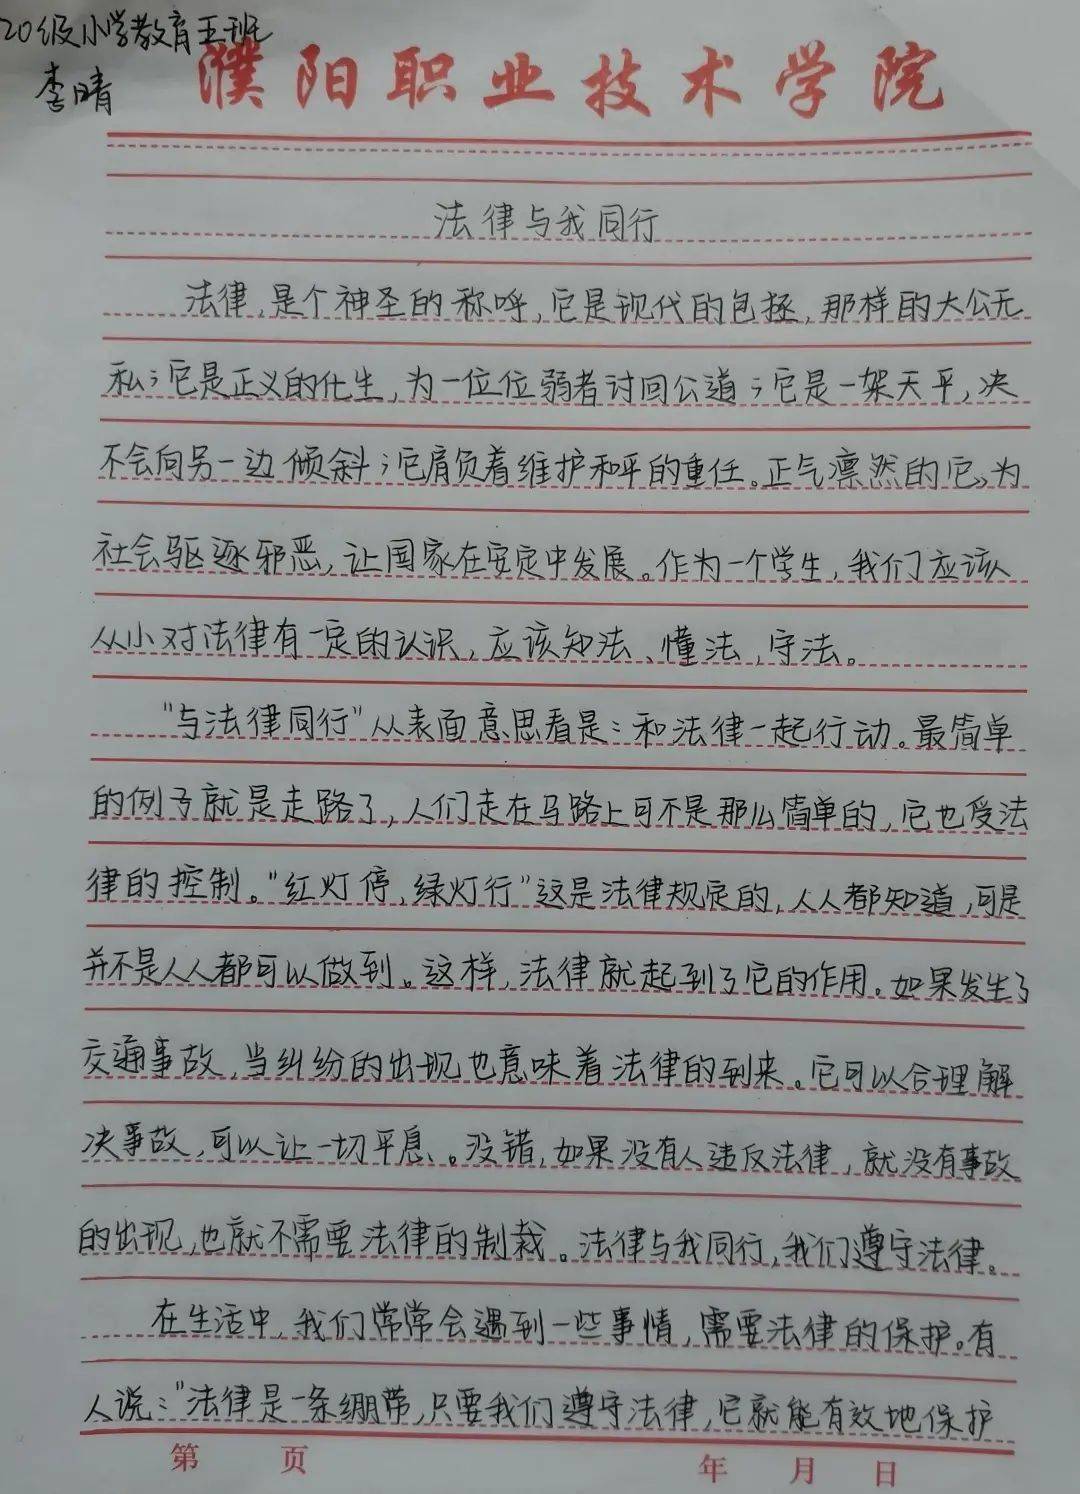 20级小学教育五班
李晴
濮阳职业技术学院
法律与我同行
法律,是个神圣的称呼,它是现代的包拯,那样的大公无
私;它是正义的化生,为一位位弱者讨回公道;它是一架天平,决
不会向另一边倾斜;它肩负着维护和平的重任。正气凛然的它,为
社会驱逐邪恶,让国家在安定中发展。作为一个学生,我们应该
从小对法律有一定的认识,应该知法、懂法,守法。
“与法律同行”从表面意思看是:和法律一起行动。最简单
的例子就是走路了,人们走在马路上可不是那么简单的,它也受法
律的控制。“红灯停,绿灯行”这是法律规定的,人人都知道,可是
并不是人人都可以做到。这样,法律就起到了它的作用。如果发生了
交通事故,当纠纷的出现也意味着法律的到来。它可以合理解
决事故,可以让一切平息。没错,如果没有人违反法律,就没有事故
的出现,也就不需要法律的制裁。法律与我同行,我们遵守法律。
在生活中,我们常常会遇到一些事情,需要法律的保护。有
人说:“法律是一条绷带,只要我们遵守法律,它就能有效地保护
第 页 年 月 日